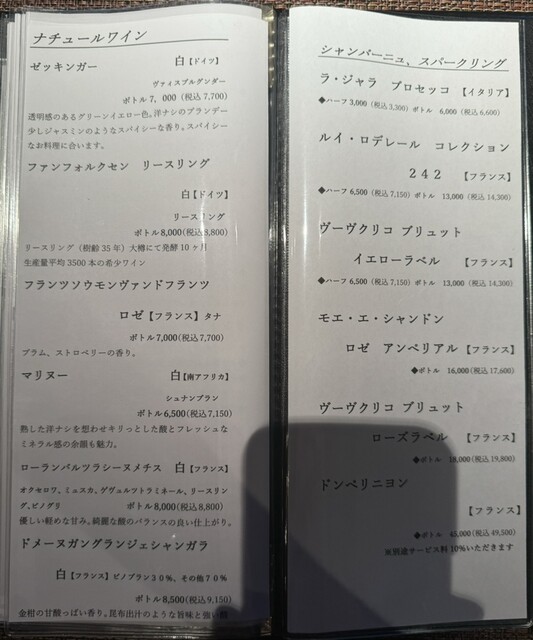 ナチュールワイン
ゼッキンガー 白【ドイツ】
ヴァイスブルグンダー
ボトル7,000(税込7,700)
透明感のあるグリーンイエロー色。洋ナシのブランデー
少しジャスミンのようなスパイシーな香り。スパイシー
なお料理に合います。
ファンフォルクセン リースリング
白【ドイツ】
リースリング
ボトル8,000(税込8,800)
リースリング(樹齢35年)大樽にて発酵10ヶ月
生産量平均3500本の希少ワイン
フランツソウモンヴァンドフランツ
ロゼ【フランス】タナ
ボトル7,000(税込7,700)
プラム、ストロベリーの香り。
マリヌー 白【南アフリカ】
シュナンブラン
ボトル6,500(税込7,150)
熟した洋ナシを想わせキリっとした酸とフレッシュな
ミネラル感の余韻も魅力。
ローランバルツラシーヌメチス 白【フランス】
オクセロワ、ミュスカ、ゲヴュルツトラミネール、リースリン
グ、ピノグリ ボトル8,000(税込8,800)
優しい軽めな甘み。綺麗な酸のバランスの良い仕上がり。
ドメーヌガングランジェシャンガラ
白【フランス】ピノブラン30%、その他70%
ボトル8,500(税込9,150)
金柑の甘酸っぱい香り。昆布出汁のような旨味と強い
シャンパーニュ、スパークリング
ラ・ジャラ プロセッコ 【イタリア】
◆ハーフ3,000(税込3,300) ボトル 6,000(税込6,600)
ルイ・ロデレール コレクション
242 【フランス】
◆ハーフ 6,500(税込7,150) ボトル 13,000(税込14,300)
ヴーヴクリコ ブリュット
イエローラベル 【フランス】
◆ハーフ 6,500(税込7,150) ボトル 13,000(税込14,300)
モエ・エ・シャンドン
ロゼ アンペリアル【フランス】
◆ボトル 16,000(税込17,600)
ヴーヴクリコ ブリュット
ローズラベル 【フランス】
◆ボトル 18,000(税込19,800)
ドンペリニヨン
【フランス】
◆ボトル 45,000(税込49,500)
※別途サービス料10%いただきます